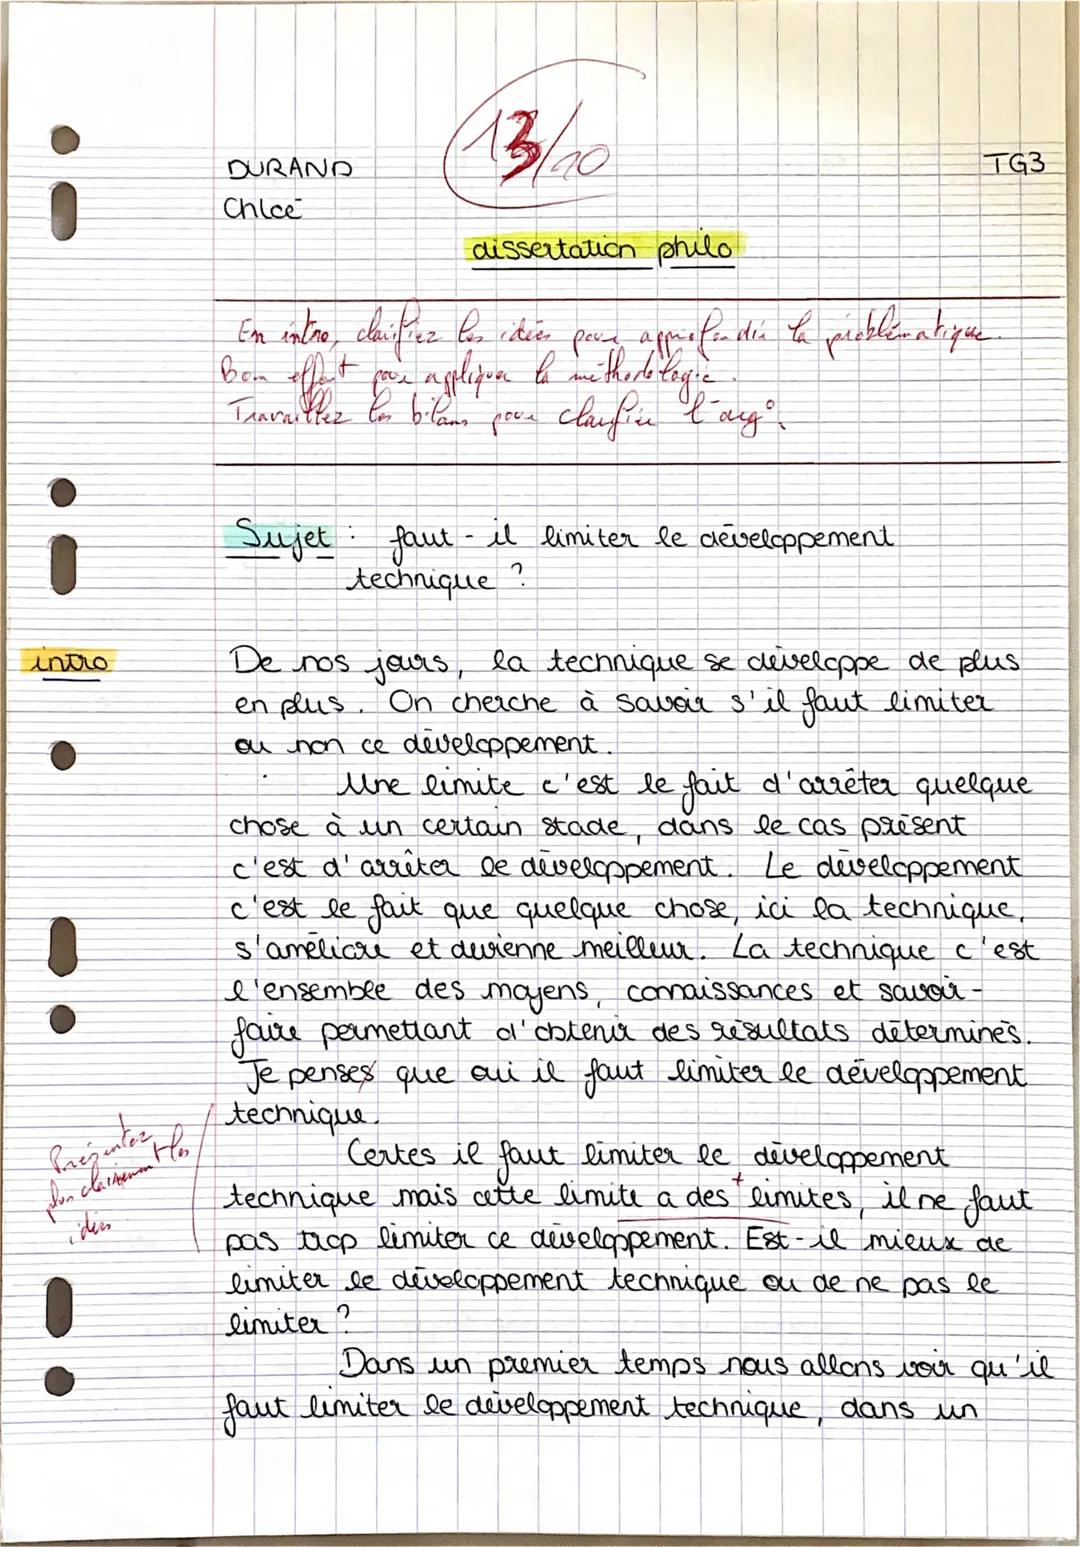 13/20
DURAND
TG3
Chloé
dissertation philo
En intro, clarifiez les idées pour approfondir la problématique.
Bon effort pour appliquer la méthodologie.
Travaillez les bilans pour clarifier l'arg°.
Sujet : faut-il limiter le développement
technique ?
intro
De nos jours, la technique se développe de plus
en plus. On cherche à savoir s'il faut limiter
ou non ce développement.
Une limite c'est le fait d'arrêter quelque
chose à un certain stade, dans le cas présent
c'est d'arrêter le développement. Le développement
c'est le fait que quelque chose, ici la technique,
s'améliore et devienne meilleur. La technique c'est
l'ensemble des moyens, connaissances et savoir-
faire permettant d'obtenir des résultats déterminés.
Je penses que oui il faut limiter le développement
technique.
Présentez
plus clairement les
idées
Certes il faut limiter le développement
technique mais cette limite a des + limites, il ne faut
pas trop limiter ce développement. Est-il mieux de
limiter le développement technique ou de ne pas le
limiter ?
Dans un premier temps nous allons voir qu'il
faut limiter le développement technique, dans un